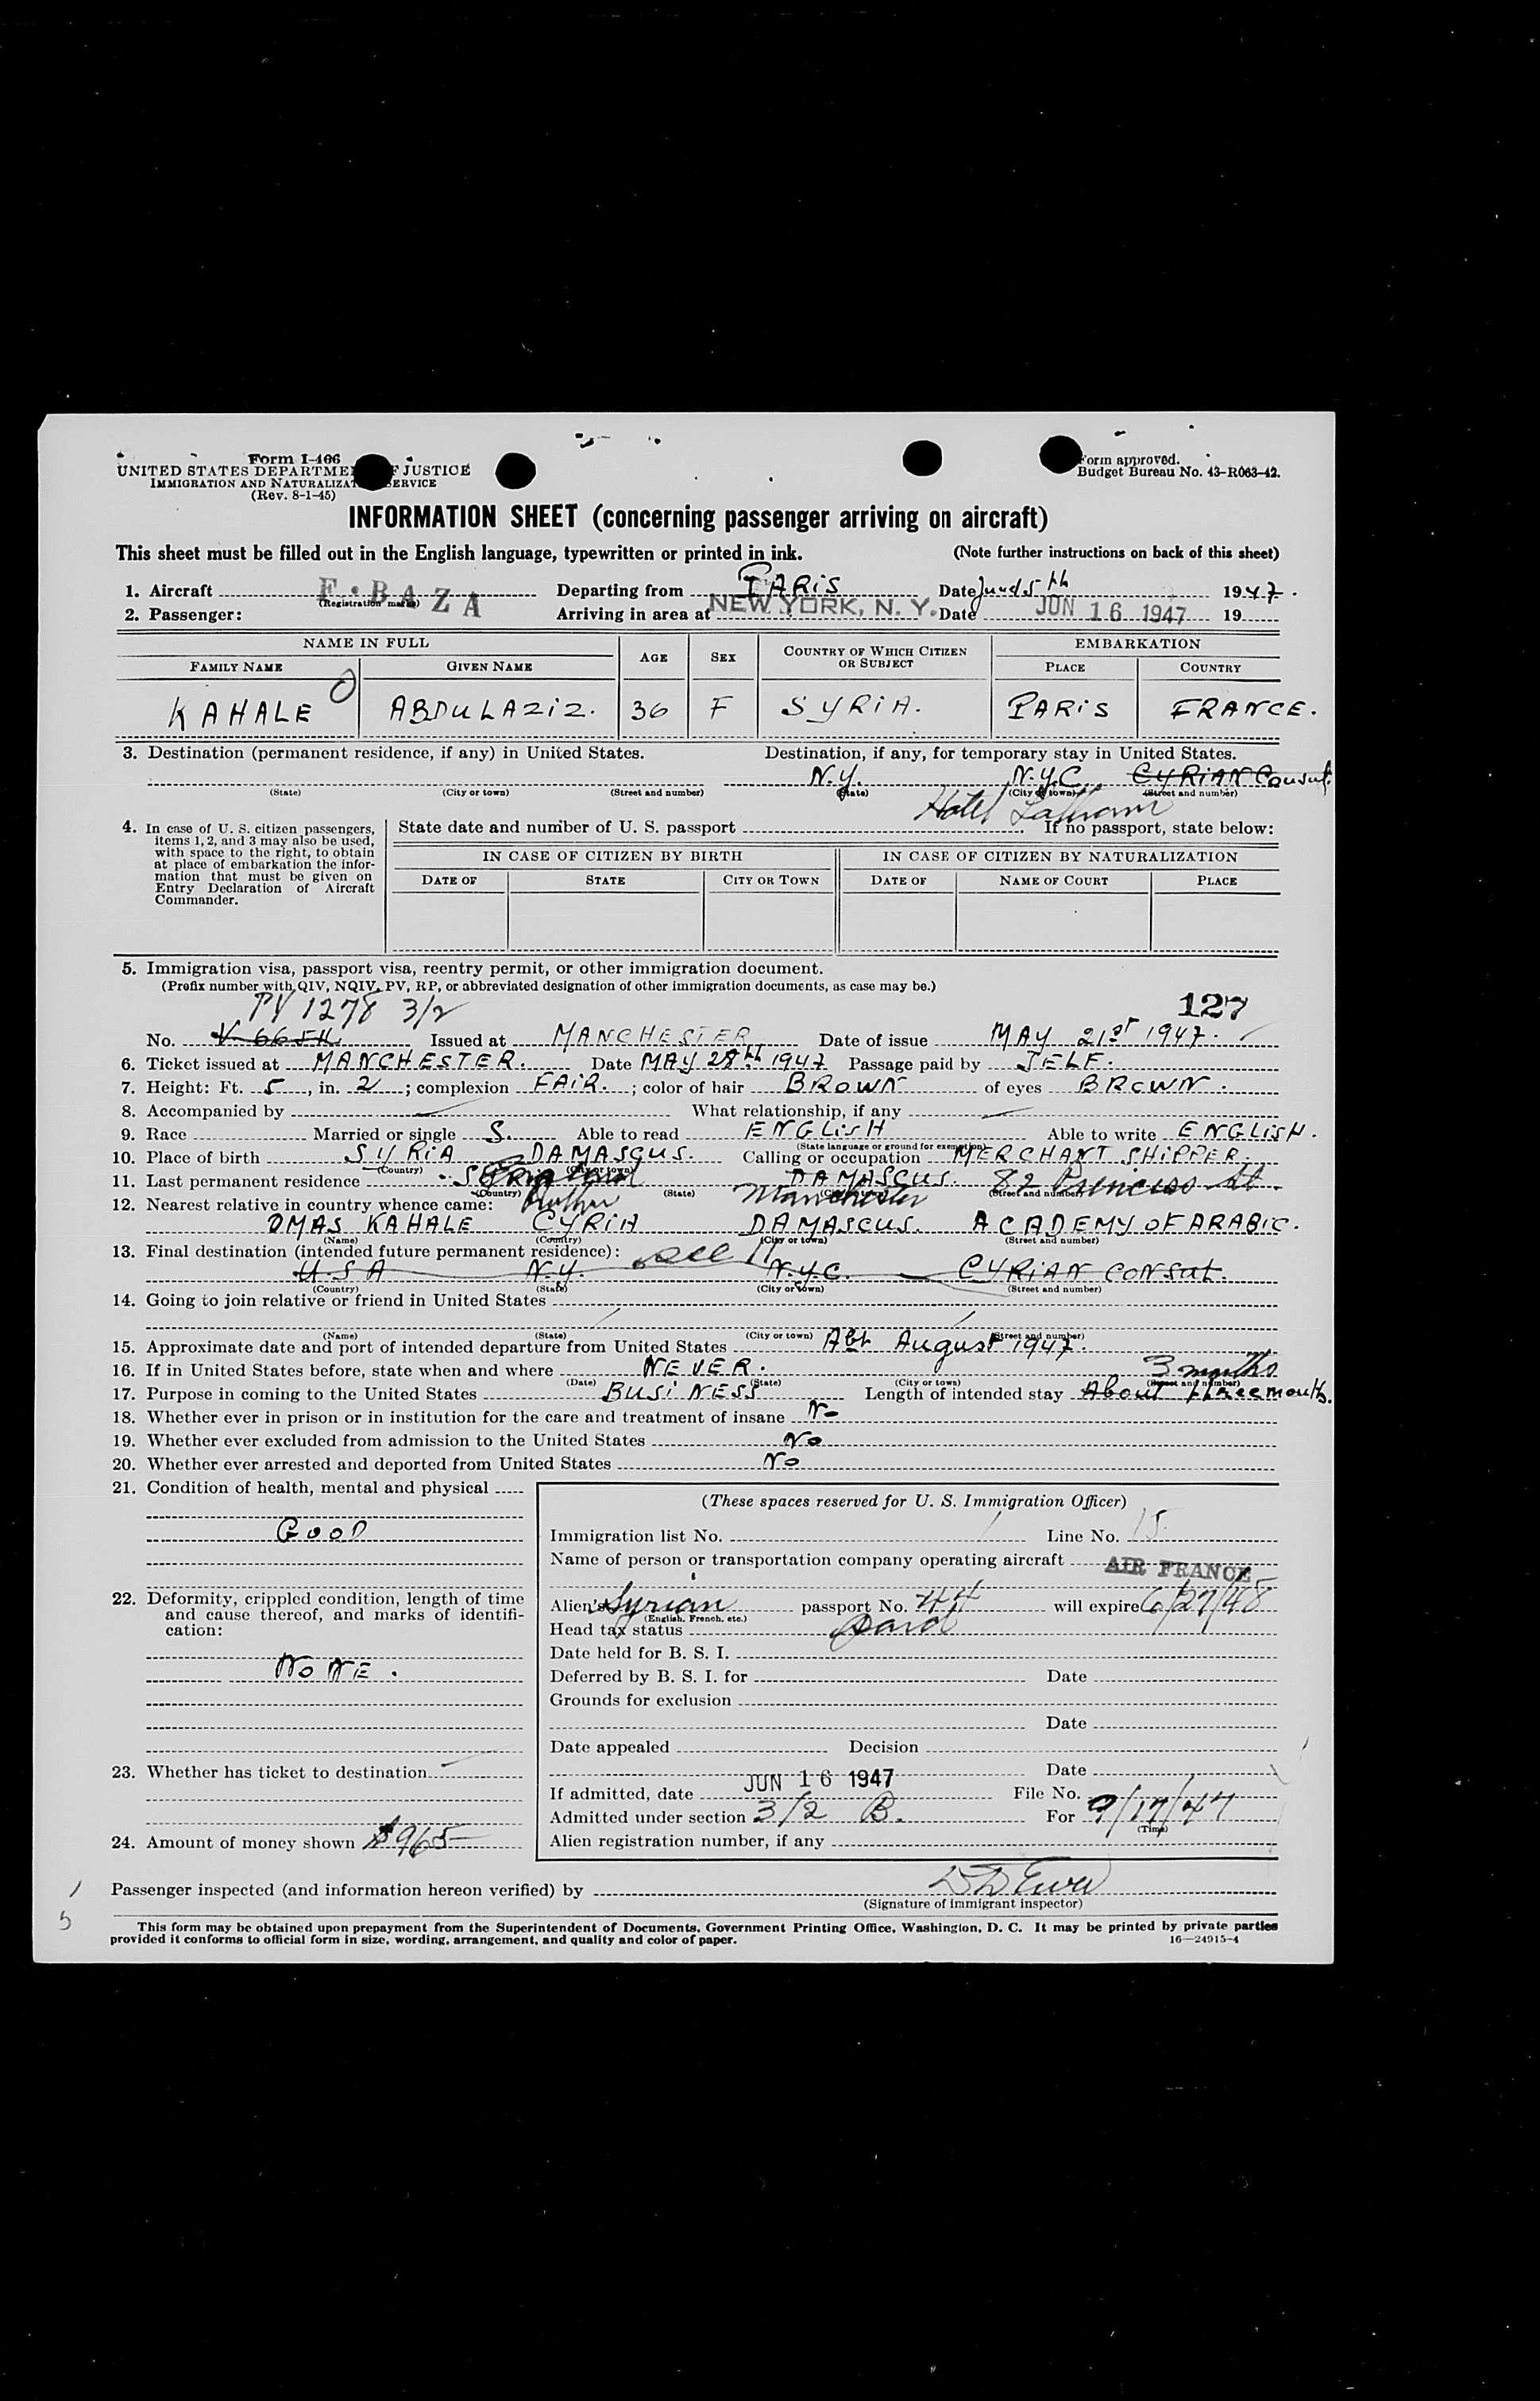 Form I-466
UNITED STATES DEPARTMENT OF JUSTICE
IMMIGRATION AND NATURALIZATION SERVICE
(Rev. 8-1-45)
Form approved.
Budget Bureau No. 43-R063-42.
INFORMATION SHEET (concerning passenger arriving on aircraft)
This sheet must be filled out in the English language, typewritten or printed in ink. (Note further instructions on back of this sheet)
1. Aircraft F·BAZA Departing from PARiS Date 5th 1947.
(Registration marks)
2. Passenger: Arriving in area at NEW YORK, N. Y. Date JUN 16 1947 19
NAME IN FULL AGE SEX COUNTRY OF WHICH CITIZEN OR SUBJECT EMBARKATION
FAMILY NAME GIVEN NAME PLACE COUNTRY
KAHALE ABDULAZiZ. 36 F SYRiA. PARiS FRANCE.
3. Destination (permanent residence, if any) in United States. Destination, if any, for temporary stay in United States.
N.Y. N.Y.C CYRiAN Consul.
(State) (City or town) (Street and number) (State) (City or town) (Street and number)
Hotel Latham
4. In case of U. S. citizen passengers, items 1, 2, and 3 may also be used, with space to the right, to obtain at place of embarkation the information that must be given on Entry Declaration of Aircraft Commander.
State date and number of U. S. passport If no passport, state below:
IN CASE OF CITIZEN BY BIRTH IN CASE OF CITIZEN BY NATURALIZATION
DATE OF STATE CITY OR TOWN DATE OF NAME OF COURT PLACE
5. Immigration visa, passport visa, reentry permit, or other immigration document.
(Prefix number with QIV, NQIV, PV, RP, or abbreviated designation of other immigration documents, as case may be.)
PV 1278 3/2 127
No. Issued at MANCHESTER Date of issue MAY 21st 1947.
6. Ticket issued at MANCHESTER. Date MAY 28th 1947 Passage paid by SELF.
7. Height: Ft. 5, in. 2; complexion FAiR.; color of hair BROWN of eyes BROWN.
8. Accompanied by What relationship, if any
9. Race Married or single S. Able to read ENGLiSH Able to write ENGLiSH.
(State language or ground for exemption)
10. Place of birth SYRiA DAMASCUS. Calling or occupation MERCHANT SHiPPER.
(Country) (City or town)
11. Last permanent residence DAMASCUS. 82 Princess St.
(Country) (State) (City or town) (Street and number)
Manchester
12. Nearest relative in country whence came:
OMAS KAHALE CYRiA DAMASCUS. ACADEMY OF ARABiC.
(Name) (Country) (City or town) (Street and number)
13. Final destination (intended future permanent residence): see 11
USA N.Y. N.Y.C. CYRiAN CONSUL.
(Country) (State) (City or town) (Street and number)
14. Going to join relative or friend in United States
(Name) (State) (City or town) (Street and number)
15. Approximate date and port of intended departure from United States Abt August 1947.
16. If in United States before, state when and where NEVER.
(Date) (State) (City or town) (Street and number)
3 months
17. Purpose in coming to the United States BUSiNESS Length of intended stay About three months.
18. Whether ever in prison or in institution for the care and treatment of insane No
19. Whether ever excluded from admission to the United States No
20. Whether ever arrested and deported from United States No
21. Condition of health, mental and physical
GOOD
22. Deformity, crippled condition, length of time and cause thereof, and marks of identification:
NONE.
23. Whether has ticket to destination
24. Amount of money shown $965
(These spaces reserved for U. S. Immigration Officer)
Immigration list No. Line No. 15
Name of person or transportation company operating aircraft AIR FRANCE
Alien's Syrian passport No. 44 will expire 6/27/48
(English, French, etc.)
Head tax status
Date held for B. S. I.
Deferred by B. S. I. for Date
Grounds for exclusion
Date
Date appealed Decision
Date
If admitted, date JUN 16 1947 File No.
Admitted under section 3/2 B. For 9/17/47
(Time)
Alien registration number, if any
Passenger inspected (and information hereon verified) by
(Signature of immigrant inspector)
This form may be obtained upon prepayment from the Superintendent of Documents, Government Printing Office, Washington, D. C. It may be printed by private parties
provided it conforms to official form in size, wording, arrangement, and quality and color of paper. 16—24915-4